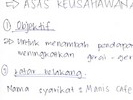 ⇨ ASAS KEUSAHAWAN
① Objektif
⇨ Untuk menambah pendapa
meningkatkan gerai-ger
② Latar belakang
Nama syarikat : Manis Cafe